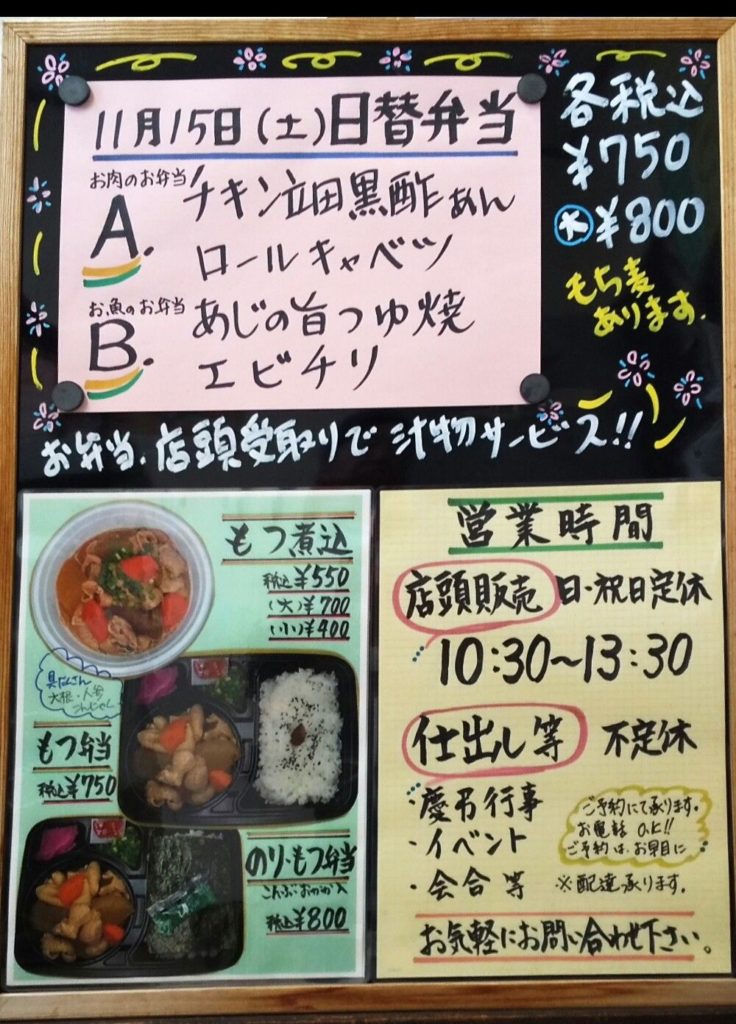 11月15日(土)日替弁当
お肉のお弁当
A.
チキン立田黒酢あん
ロールキャベツ
お魚のお弁当
B.
あじの旨つゆ焼
エビチリ
各税込
¥750
大¥800
もち麦
あります.
お弁当.店頭受取りで汁物サービス!!
もつ煮込
税込¥550
(大)¥700
(小)¥400
具だくさん
大根・人参
こんにゃく
もつ弁当
税込¥750
のり・もつ弁当
こんぶ・おかか入
税込¥800
営業時間
店頭販売 日・祝日定休
10:30~13:30
仕出し等 不定休
・慶弔行事
・イベント
・会合等
ご予約にて承ります.
お電話OK!!
ご予約はお早目に
※配達承ります.
お気軽にお問い合わせ下さい。